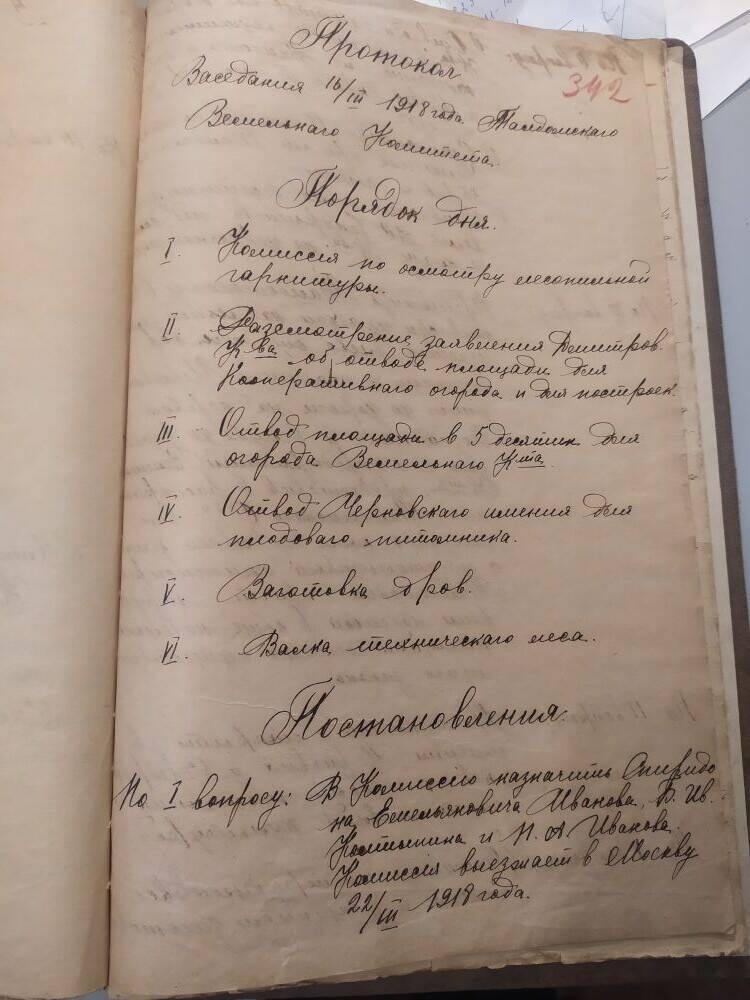 342
Протокол
Заседания 16/III 1918 года Талдомского
Земельнаго Комитета.
Порядок дня.
I. Комиссія по осмотру лесопильной
гарнитуры.
II. Разсмотрение заявления Дмитров.
К-ва об отводе площади для
Кооперативнаго огорода и для построек.
III. Отвод площади в 5 десятин для
огорода Земельнаго К-та.
IV. Отвод Черновскаго имения для
плодоваго питомника.
V. Заготовка дров.
VI. Валка техническаго леса.
Постановления.
По I вопросу: В Комиссію назначить Спиридо
на Емельяновича Иванова, В. Ив.
и Н. А. Иванова.
Комиссія выезжает в Москву
22/III 1918 года.